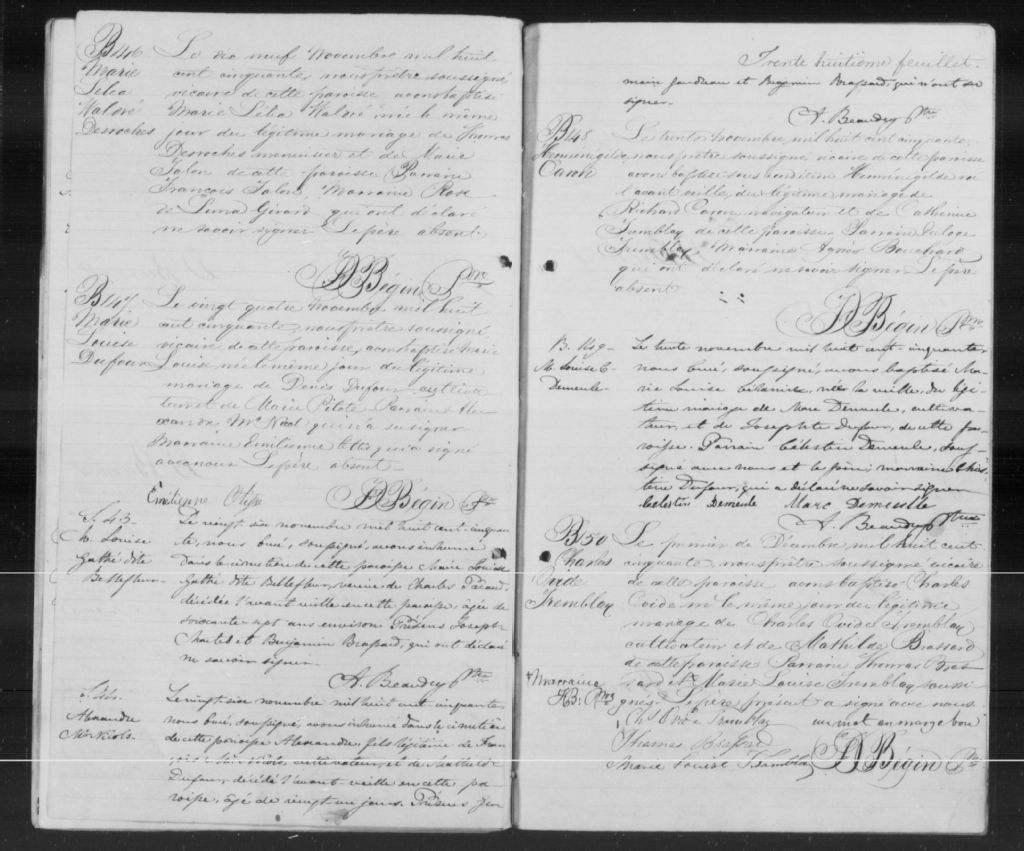 B146
Marie
Léléa
Maloré
Desroches
Le dix neuf Novembre mil huit
cent cinquante, nous prêtre soussigné
vicaire de cette paroisse avons baptisé
Marie Maloré née le même
jour du légitime mariage de Thomas
Desroches menuisier et de Marie
Talon de cette paroisse Parrain
François Talon Marraine Rose
de Girard qui ont déclaré
ne savoir signer Le père absent.
Bégin Ptre
B147
Marie
Louise
Dufour
Le vingt quatre Novembre mil huit
cent cinquante, nous prêtre soussigné
vicaire de cette paroisse, avons baptisé Marie
Louise née le même jour du légitime
mariage de Denis Dufour cultiva
teur et de Marie Pilote Parrain Ale
xandre Mc Nicol qui n'a su signer
Marraine Emilienne qui a signé
avec nous Le père absent
Emélienne
Bégin Ptre
S. 43.
M. Louise
Gathé dite
Bellefleur.
Le vingt six novembre mil huit cent cinquan-
te, nous curé, soussigné, avons inhumé
dans le cimetière de cette paroisse Marie Louise
Gathé dite Bellefleur, veuve de Charles
décédée l'avant veille en cette paroisse, agée de
soixante sept ans environ. Présens Joseph
et Benjamin Brassard, qui ont déclaré
ne savoir signer.
A. Beaudry Ptre
S. 44.
Alexandre
McNicols.
Le vingt six novembre mil huit cent cinquante,
nous curé, soussigné, avons inhumé dans le cimetière
de cette paroisse Alexandre, fils légitime de Fran-
çois cultivateur, et de
Dufour, décédé l'avant-veille en cette pa-
roisse, agé de vingt un jours. Présens
Trente huitième feuillet.
main Gaudreau et Benjamin Brassard, qui n'ont su
signer.
A. Beaudry Ptre
B148
Herménégilde
Caron
Le trente Novembre, mil huit cent cinquante,
nous prêtre soussigné vicaire de cette paroisse
avons baptisé sous condition Herménégilde né
l'avant veille, du légitime mariage de
Richard Caron navigateur et de Catherine
Tremblay de cette paroisse. Parrain
Tremblay Marraine Agnès Bouchard
qui ont déclaré ne savoir signer Le père
absent
Bégin Ptre
B. 149
M. Louise C-
Demeule.
Le trente novembre mil huit cent cinquante,
nous curé, soussigné, avons baptisé Ma-
rie Louise née la veille, du légi-
time mariage de Marc Demeule, cultiva-
teur, et de Josephte Dufour, de cette pa-
roisse. Parrain Célestin Demeule, sous-
signé avec nous et le père; marraine Chris-
tine Dufour, qui a déclaré ne savoir signer
Celestin Demeule Marc Demeulle
A. Beaudry Ptre
B150
Charles
Ovide
Tremblay
Le premier de Décembre mil huit cent
cinquante, nous prêtre soussigné vicaire
de cette paroisse avons baptisé Charles
Ovide né le même jour du légitime
mariage de Charles Ovide Tremblay
cultivateur et de Mathilde Brassard
de cette paroisse Parrain Thomas Bras
sard et Marie Louise Tremblay soussi
gnés. Le père présent a signé avec nous.
+ marraine
Chs Ovide Tremblay un mot en marge bon
Thomas Brassard
Marie Louise Tremblay
Bégin Ptre